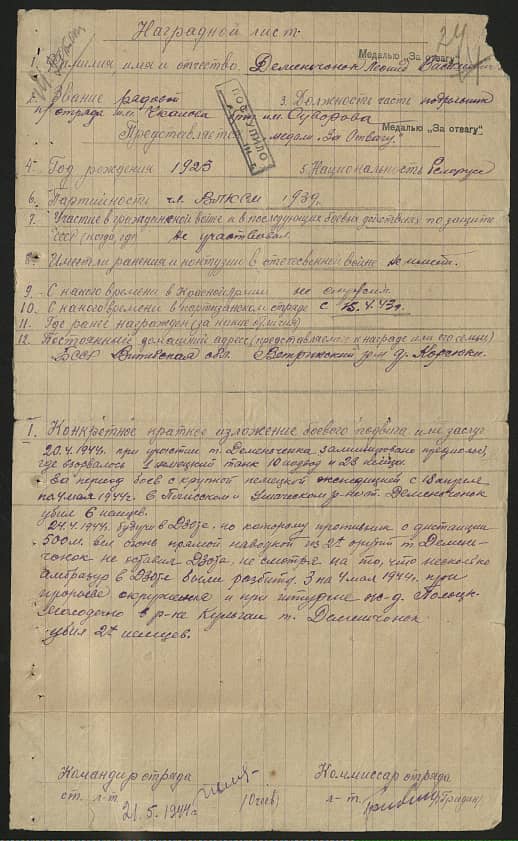 Наградной лист
Медалью „За отвагу"
24
1. Фамилия имя и отчество Деменчонок Леонид
2. Звание рядовой 3. Должность часть подрывник
отряда им. Чкалова им. Суворова
Представляется медали „За Отвагу"
Медалью „За отвагу"
ПОСТУПИЛО
4. Год рождения 1923 5. Национальность Белорус
6. Партийность чл. ВЛКСМ 1939.
7. Участие в гражданской войне и в последующих боевых действиях по защите
СССР (когда, где) не участвовал.
8. Имеет ли ранения и контузии в отечественной войне не имеет.
9. С какого времени в Красной Армии не служил.
10. С какого времени в партизанском отряде с 15.4.43г.
11. Где ранее награжден (за какие отличия)
12. Постоянный домашний адрес (представляемого к награде или его семьи)
БССР Витебская обл. Ветринский р-н д.
I. Конкретное краткое изложение боевого подвига или заслуг
20.4.1944г. при участии т. Деменченка заминировано
где взорвалось 1 немецкий танк 10 подвод и 23 немца.
За период боев с крупной немецкой экспедицией с 18 апреля
по 4 мая 1944г. в и Ушачском р-нах т. Деменчонок
убил 6 немцев.
24.4.1944г. будучи в Дзоте, по которому противник с дистанции
500м. вел огонь прямой наводкой из 2х орудий т. Демен-
чонок не оставил Дзота, не смотря на то, что несколько
амбразур в Дзоте были разбиты. 3 на 4 мая 1944г. при
прорыве окружения и при штурме ж-д. Полоцк-
Молодечно в р-не т. Деменчонок
убил 2х немцев.
Командир отряда Коммиссар отряда
ст. л-т. л-т.
21.5.1944г.